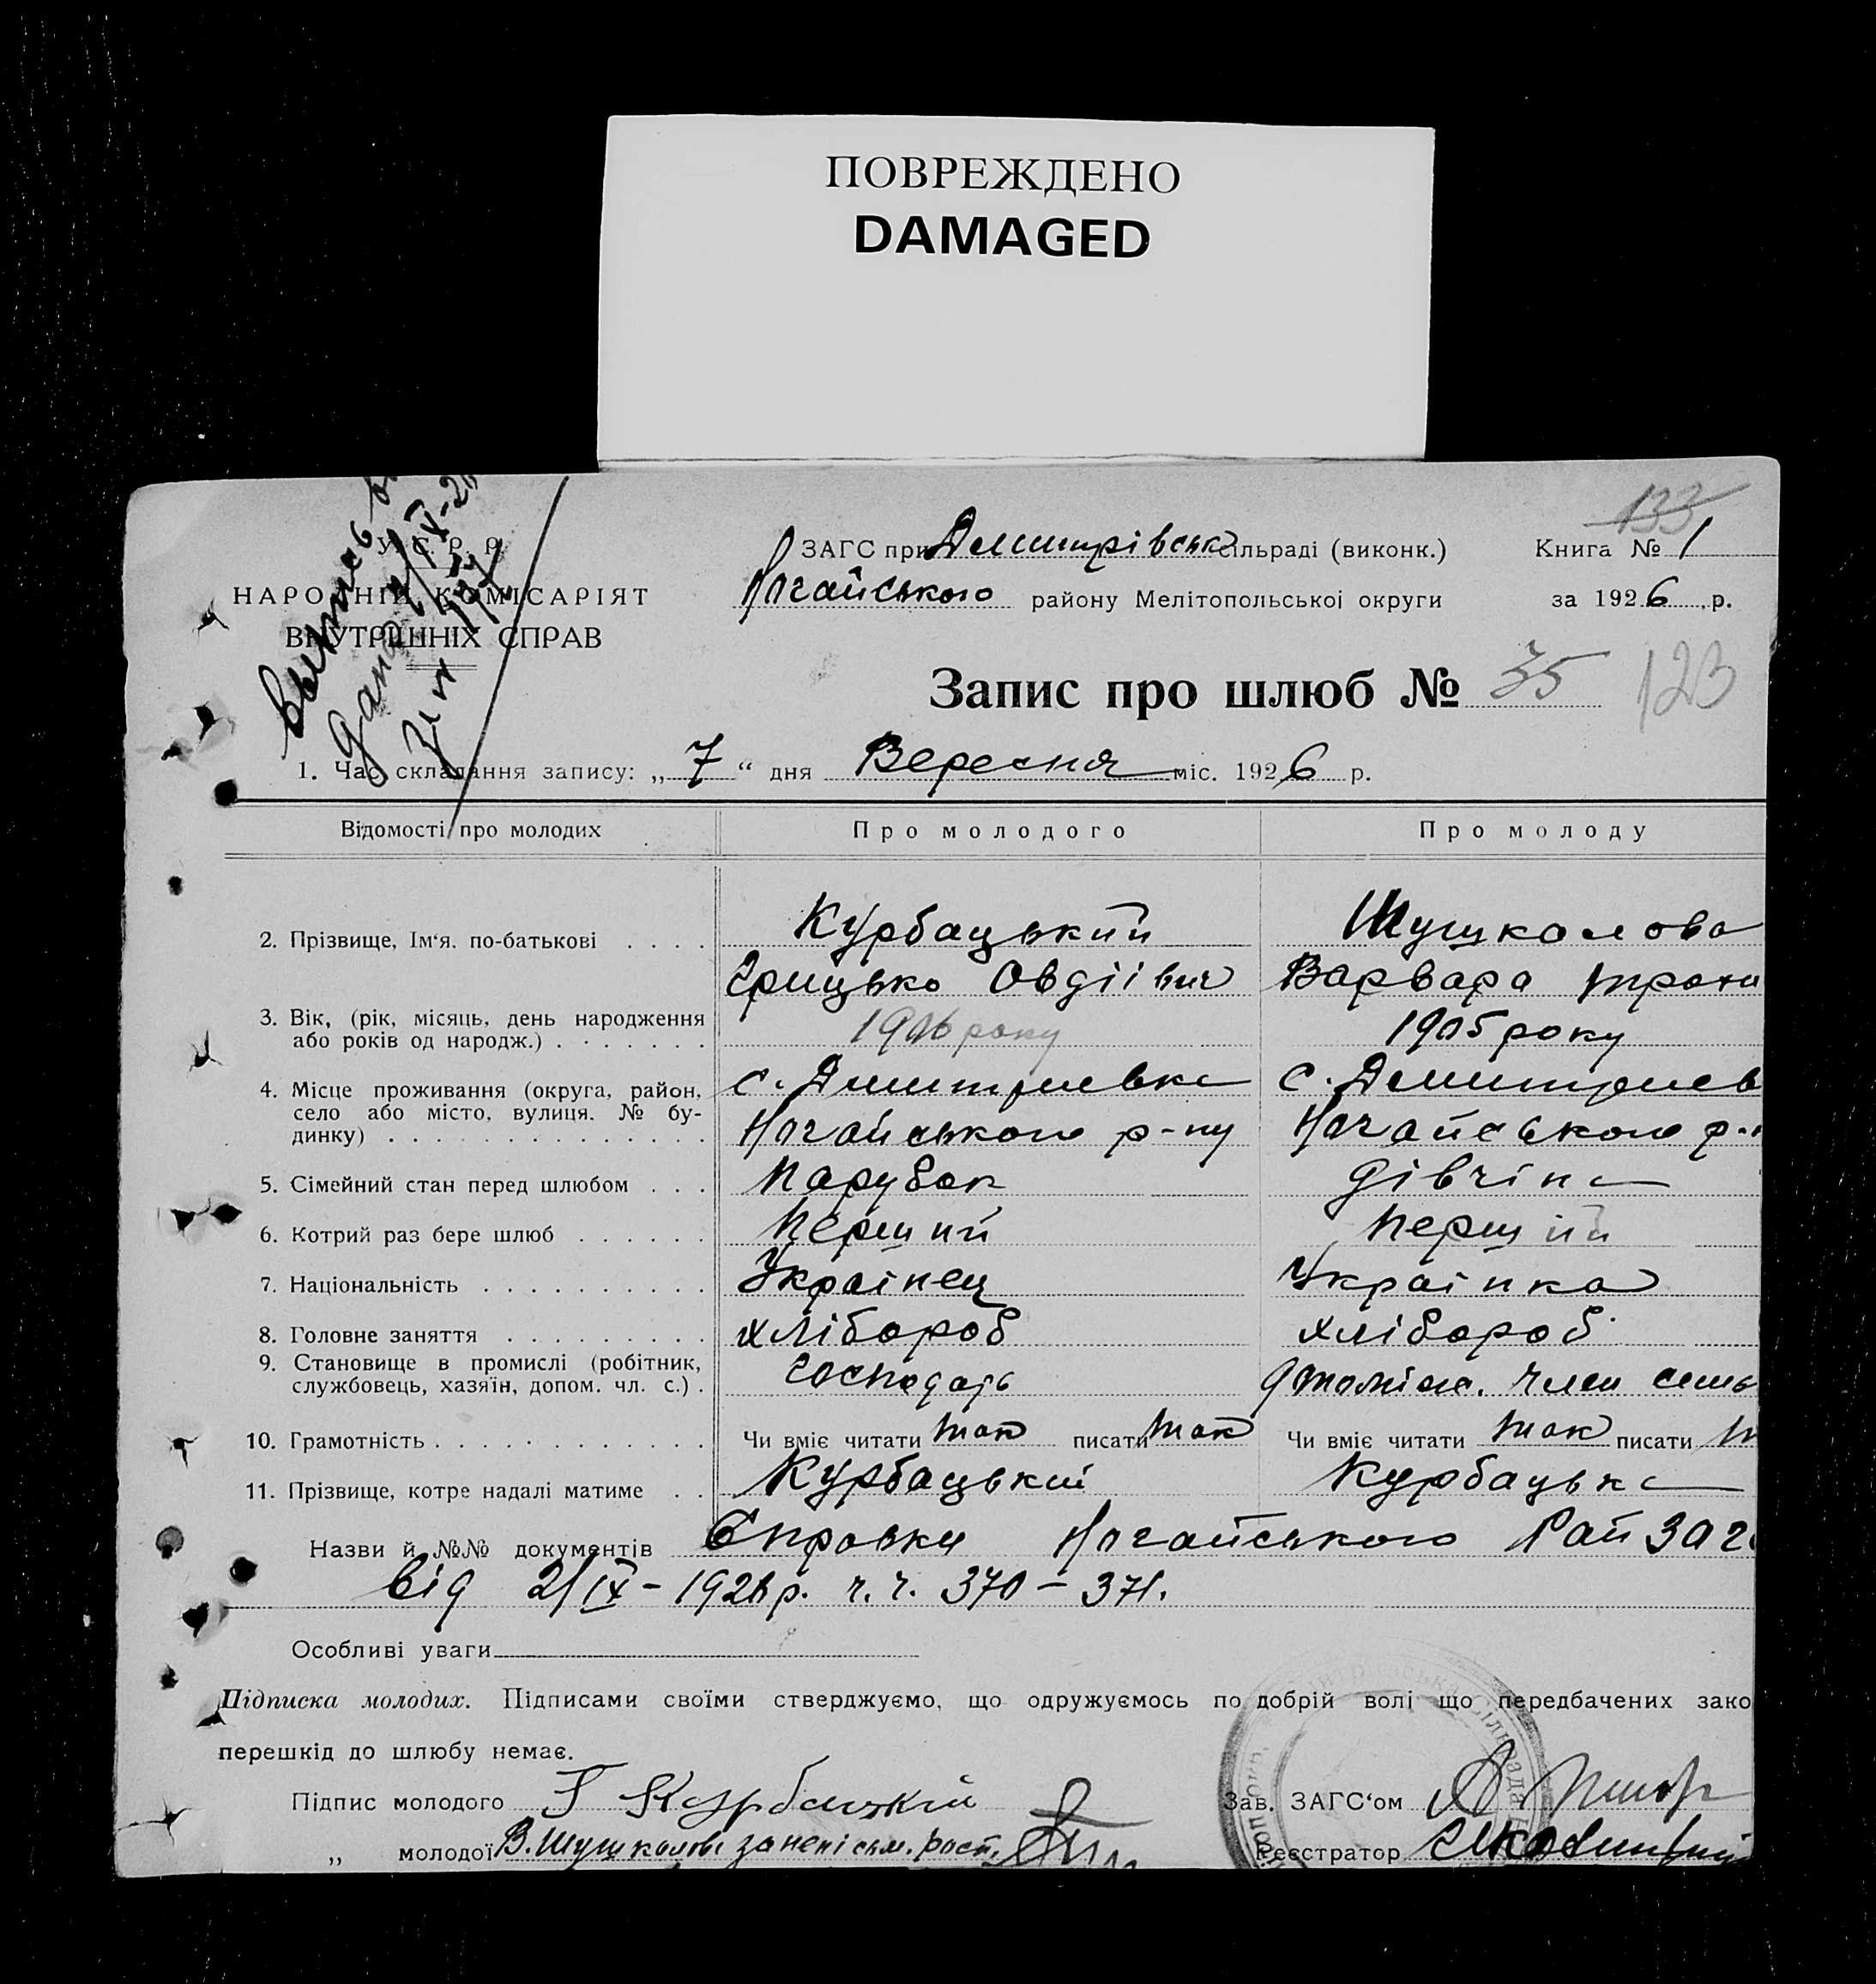 ПОВРЕЖДЕНО
DAMAGED
133
У. С. Р. Р.
НАРОДНІЙ КОМІСАРІЯТ
ВНУТРІШНІХ СПРАВ
ЗАГС при Дмитрівськ сільраді (виконк.)
Ногайського району Мелітопольської округи
Книга № 1
за 1926 р.
Запис про шлюб № 35
123
1. Час складання запису: „ 7 “ дня Вересня міс. 1926 р.
Відомості про молодих Про молодого Про молоду
2. Прізвище, Ім‘я. по-батькові . . . . Курбацький Шушкалова
Грицько Овдіівич Варвара Трохи
3. Вік, (рік, місяць, день народження
або років од народж.) . . . . . . . 1906 року 1905 року
4. Місце проживання (округа, район,
село або місто, вулиця. № бу-
динку) . . . . . . . . . . . . . .
с. Дмитриевка с. Дмитриев
Ногайського р-ну Ногайського р-н
5. Сімейний стан перед шлюбом . . . Парубок Дівчіна
6. Котрий раз бере шлюб . . . . . . Перший Перший
7. Національність . . . . . . . . . . Українец Українка
8. Головне заняття . . . . . . . . . хлібороб хлібороб
9. Становище в промислі (робітник,
службовець, хазяїн, допом. чл. с.) .
Господарь член семь
10. Грамотність . . . . . . . . . . . . Чи вміє читати так писати так Чи вміє читати так писати т
11. Прізвище, котре надалі матиме . . Курбацькій Курбацька
Назви й №№ документів Справки Ногайського Рай ЗАГС
від 2/IX – 1926 р. ч. ч. 370 – 371.
Особливі уваги
Підписка молодих. Підписами своїми стверджуємо, що одружуємось по добрій волі що передбачених зако
перешкід до шлюбу немає.
Підпис молодого Г Курбацкій Зав. ЗАГС‘ом
„ молодої В. Шушкалова за неписьм. расп. Реєстратор